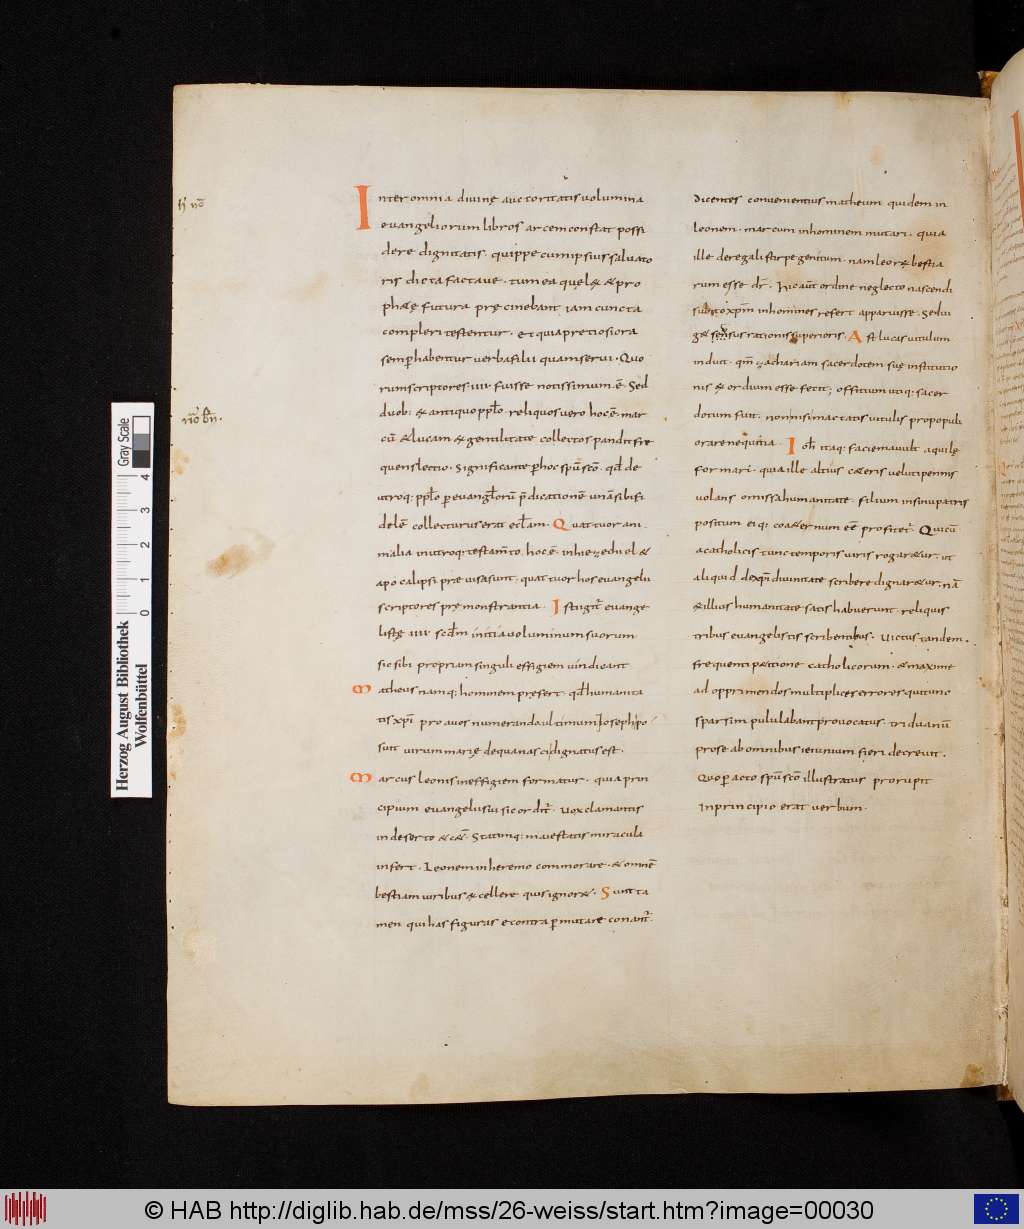 Inter omnia divinę auctoritatis volumina
evangeliorum libros arcem constat possi
dere dignitatis. quippe cum ipsius salvato
ris dicta factave. tum ea quę lex et pro
phetę futura prę cinebant iam cuncta
compleri testentur. et quia pretiosiora
semper habentur verba filii quam servi. Quo
rum scriptores IIII. fuisse notissimum. ē. Sed
duob; ex antiquo pplo. reliquos vero hoc. ē. mar
cū & lucam ex gentilitate collectos pandit fre
quens lectio. Significante per hoc spū scō. qđ de
utroq; pplo per evangliorū p̄dicationē unā sibi fi
delē collecturus erat ecclam. Quattuor ani
malia in utroq; testam̄to. hoc. ē. in hiezechiel &
apocalipsi prę visa sunt. quattuor hos evangelii
scriptores prę monstrantia. Isti igit̄ evange
listę IIII. scdm initia voluminum suorum
sic sibi propriam singuli effigiem vindicant
Matheus namq; hominem prefert. qđ humanita
tis xp̄i proavos numerando ultimum Ioseph po
suit virum marię de qua nasci dignatus est.
Marcus leonis in effigiem formatur. quia prin
cipium evangelii sui sic ordit̄. Vox clamantis
in deserto & cet̄. Statimq; maiestatis miracula
infert. Leonem in heremo commorare. & omnē
bestiam viribus excellere quis ignoret. Sunt ta
men qui has figuras econtra permutare conant̄.
dicentes convenientius matheum quidem in
leonem. marcum in hominem mutari. quia
ille de regali stirpe genitum. nam leo rex bestia
rum esse dr̄. hic aūt ordine neglecto nascendi
subito xp̄m in homines refert apparuisse. Sed vi
get sensus rationis superioris. Ast lucas vitulum
induit. qm̄ zachariam sacerdotem sue institutio
nis exordium esse fecit; officium utiq; sacer
dotum fuit. non nisi mactatis vitulis pro populi
orare nequitia. Ioh̄ itaq; faciem avult aquilę
formari. quia ille altius ceteris veluti pennis
volans omissa humanitate. filium in sinu patris
positum eiq; coaeternum eē profitet̄. Qui cū
a catholicis tunc temporis viris rogaretur. ut
aliquid de xp̄i divinitate scribere dignaretur. nā
& illius humanitate satis habuerunt. reliquis
tribus evangelistis scribentibus. Victus tandem.
frequenti petitione catholicorum. & maxime
ad opprimendos multiplices errores qui tunc
sparsim pululabant provocatus. triduanū
prose ab omnibus ieiunium fieri decrevit.
Quo peracto spū scō illustratus prorupit
In principio erat verbum.
Herzog August Bibliothek
Wolfenbüttel
Gray Scale
0 1 2 3 4
© HAB http://diglib.hab.de/mss/26-weiss/start.htm?image=00030